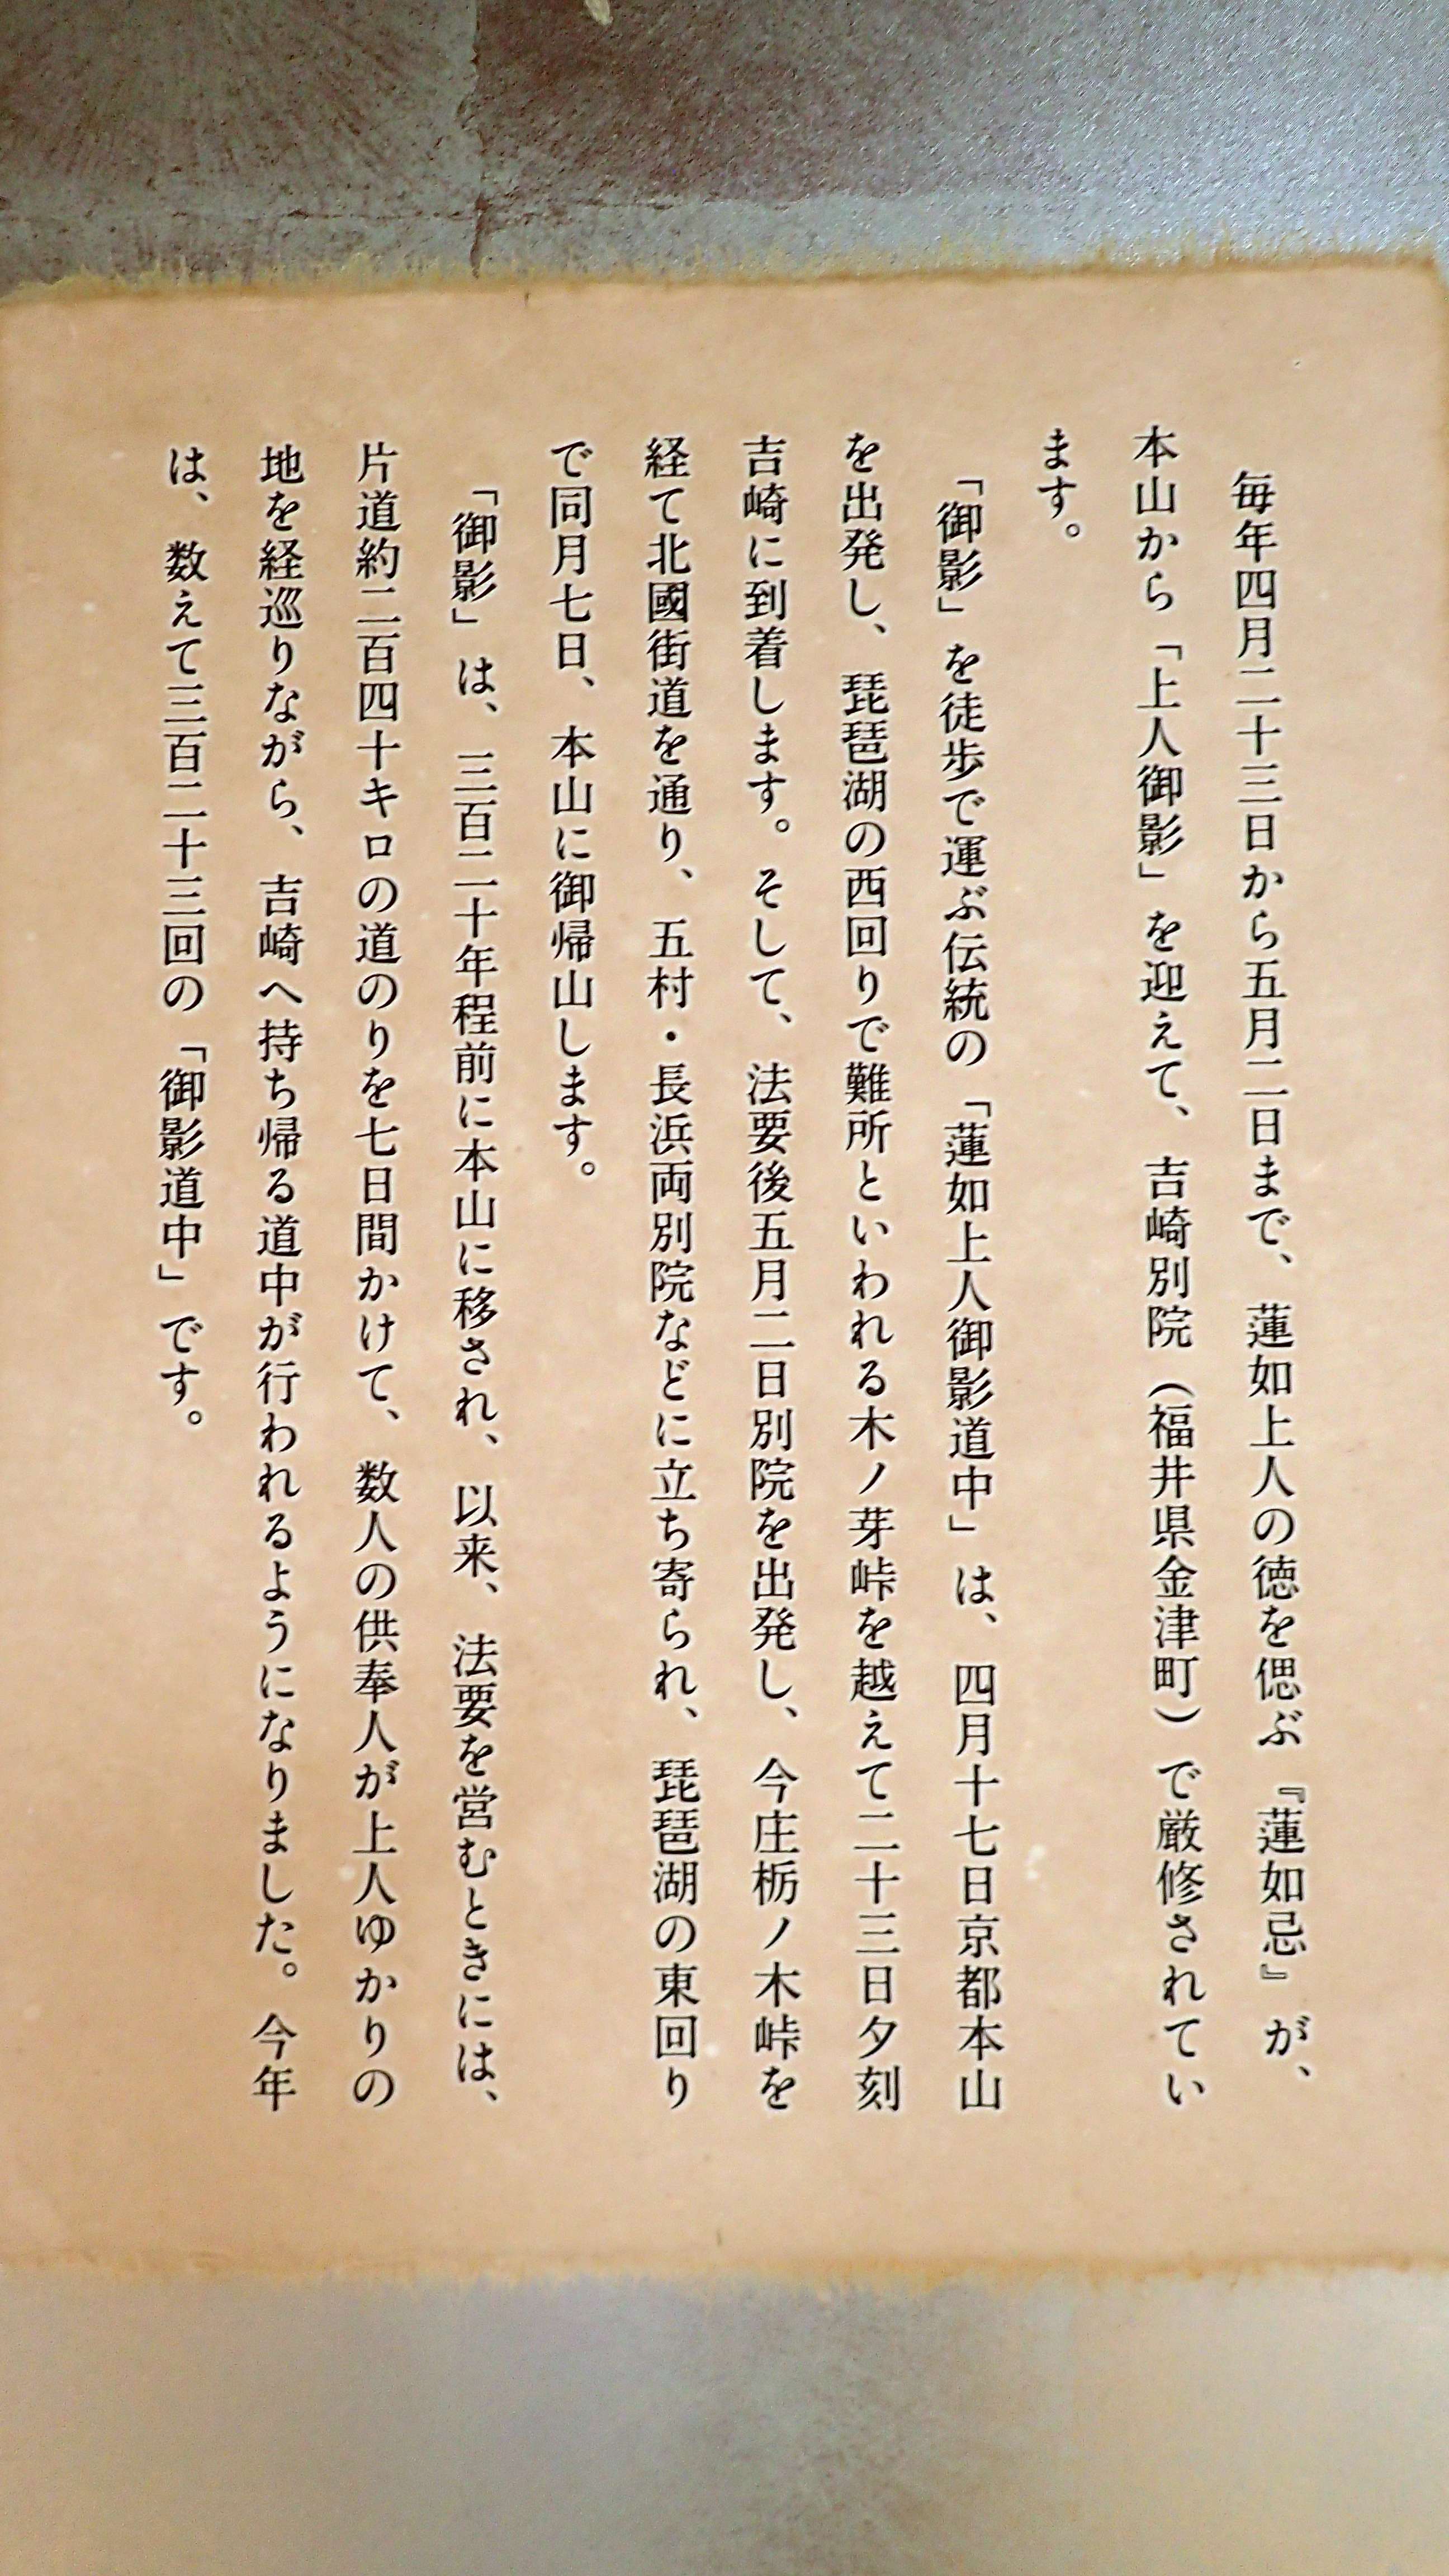 毎年四月二十三日から五月二日まで、蓮如上人の徳を偲ぶ『蓮如忌』が、
本山から「上人御影」を迎えて、吉崎別院（福井県金津町）で厳修されてい
ます。
「御影」を徒歩で運ぶ伝統の「蓮如上人御影道中」は、四月十七日京都本山
を出発し、琵琶湖の西回りで難所といわれる木ノ芽峠を越えて二十三日夕刻
吉崎に到着します。そして、法要後五月二日別院を出発し、今庄栃ノ木峠を
経て北國街道を通り、五村・長浜両別院などに立ち寄られ、琵琶湖の東回り
で同月七日、本山に御帰山します。
「御影」は、三百二十年程前に本山に移され、以来、法要を営むときには、
片道約二百四十キロの道のりを七日間かけて、数人の供奉人が上人ゆかりの
地を経巡りながら、吉崎へ持ち帰る道中が行われるようになりました。今年
は、数えて三百二十三回の「御影道中」です。